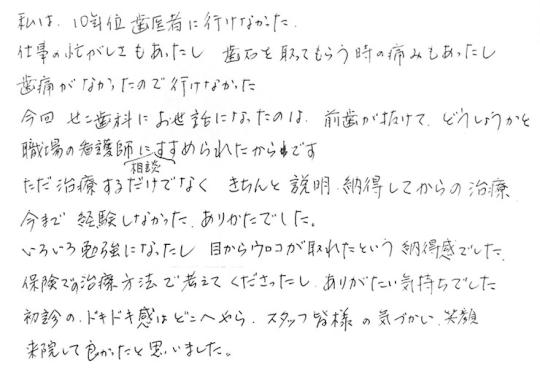 私は、10年位歯医者に行けなかった.
仕事の忙がしさもあったし 歯石を取ってもらう時の痛みもあったし
歯痛がなかったので行けなかった
今回 せこ歯科にお世話になったのは、前歯が抜けて、どうしょうかと
職場の看護師にすすめられたからです
相談
ただ治療するだけでなく きちんと説明、納得してからの治療
今まで 経験しなかった、ありかたでした。
いろいろ勉強になったし 目からウロコが取れたという納得感でした.
保険での治療方法で考えてくださったし、ありがたい気持ちでした
初診の、ドキドキ感はどこへやら、スタッフ皆様の気づかい、笑顔
来院して良かったと思いました。